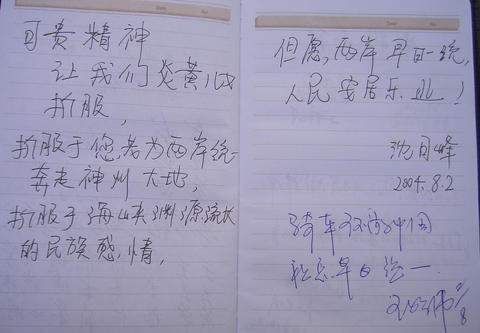 可贵精神
让我们炎黄儿女
折服,
折服于您,为两岸统一
奔走神州大地,
折服于海峡渊源流长
的民族感情,
但愿,两岸早日一统,
人民安居乐业!
沈月峰
2004.8.2
骑车环游中国
早日统一